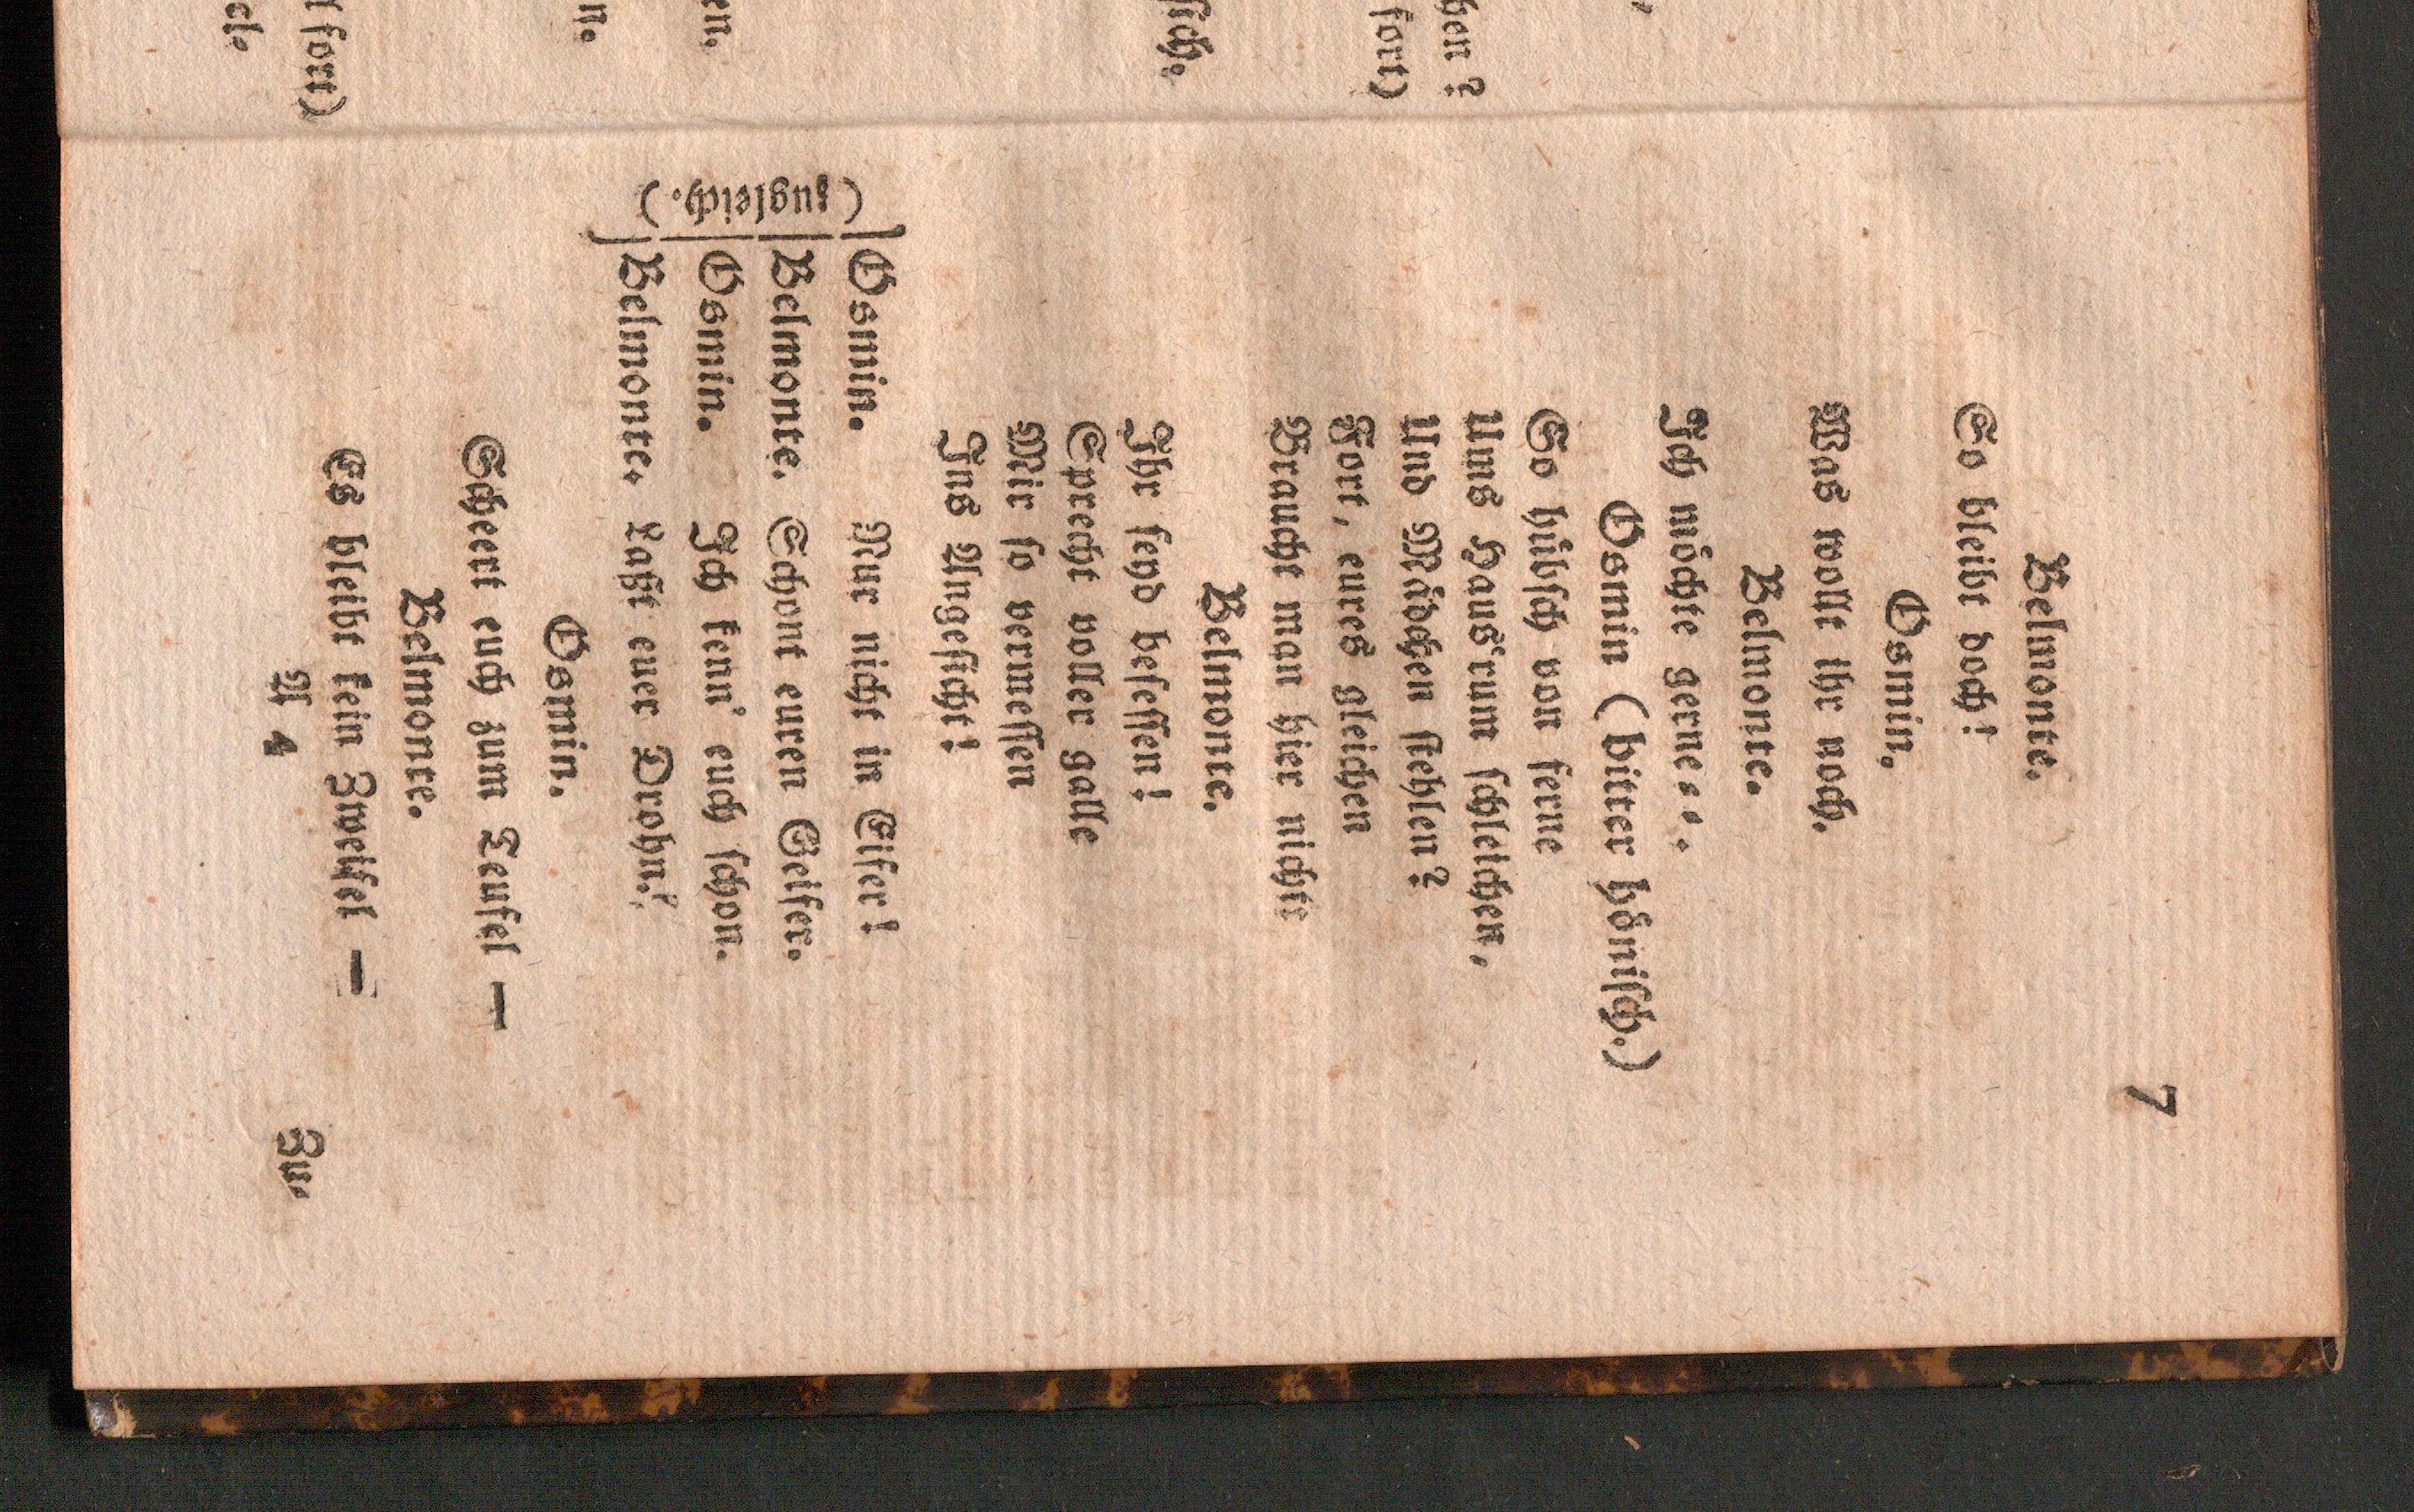 7
Belmonte.
So bleibt doch!
Osmin.
Was wollt ihr noch.
Belmonte.
Ich möchte gerne...
Osmin (bitter hönisch.)
So hübsch von ferne
Ums Haus'rum schleichen,
Und Mädchen stehlen?
Fort, eures gleichen
Braucht man hier nicht
Belmonte.
Ihr seyd besessen!
Sprecht voller galle
Mir so vermessen
Ins Angesicht!
(zugleich.)
Osmin. Nur nicht in Eifer!
Belmonte. Schont euren Geifer.
Osmin. Ich kenn' euch schon.
Belmonte. Laßt euer Drohn!
Osmin.
Scheert euch zum Teufel —
Belmonte.
Es bleibt kein Zweifel —
A 4
Zu-
hen?
fort)
sich.
en.
n.
fort)
el.